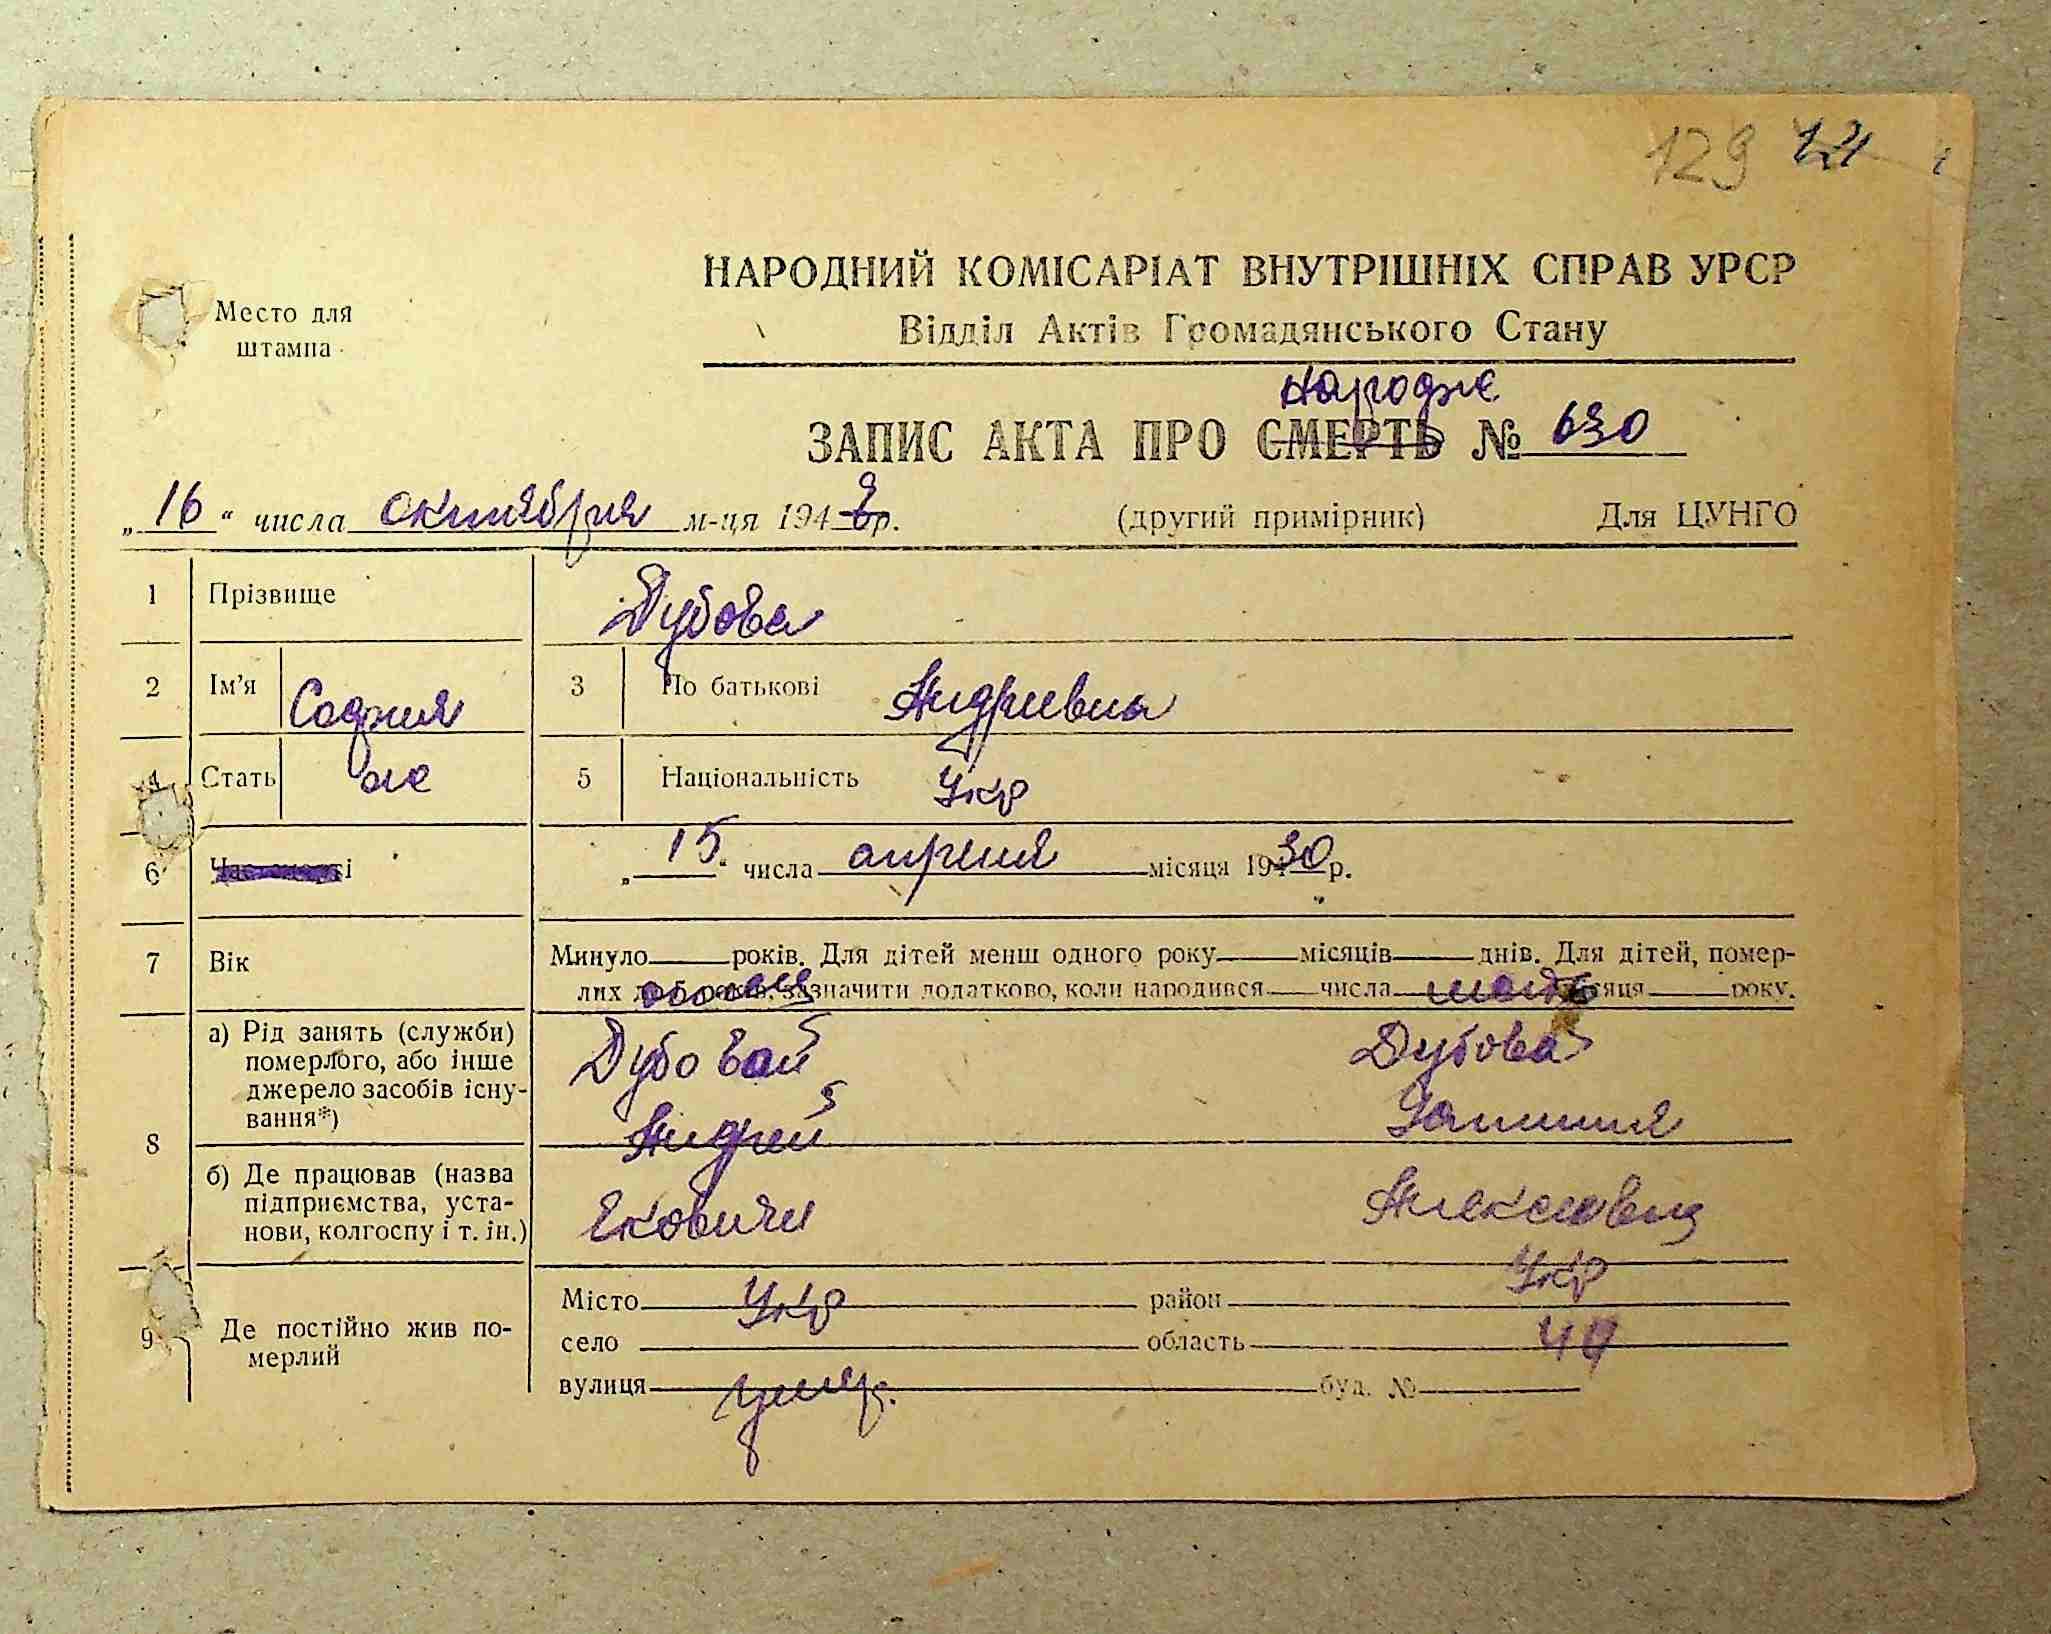 129 121
НАРОДНИЙ КОМІСАРІАТ ВНУТРІШНІХ СПРАВ УРСР
Место для штампа
Відділ Актів Громадянського Стану
народже
ЗАПИС АКТА ПРО СМЕРТЬ № 630
„16“ числа октября м-ця 194 р. (другий примірник) Для ЦУНГО
1 Прізвище Дубова
2 Ім'я София 3 По батькові Андриевна
4 Стать же 5 Національність Укр
6 „15“ числа апреля місяця 1930 р.
7 Вік Минуло років. Для дітей менш одного року місяців днів. Для дітей, помер-
лих до 5 років, зазначити додатково, коли народився числа місяця року.
8 а) Рід занять (служби) померлого, або інше джерело засобів існування*)
Дубовой Дубова
Андрей
б) Де працював (назва підприємства, установи, колгоспу і т. ін.)
Екович Алексеевна
Укр
9 Де постійно жив померлий
Місто Укр район
село область 49
вулиця буд. №